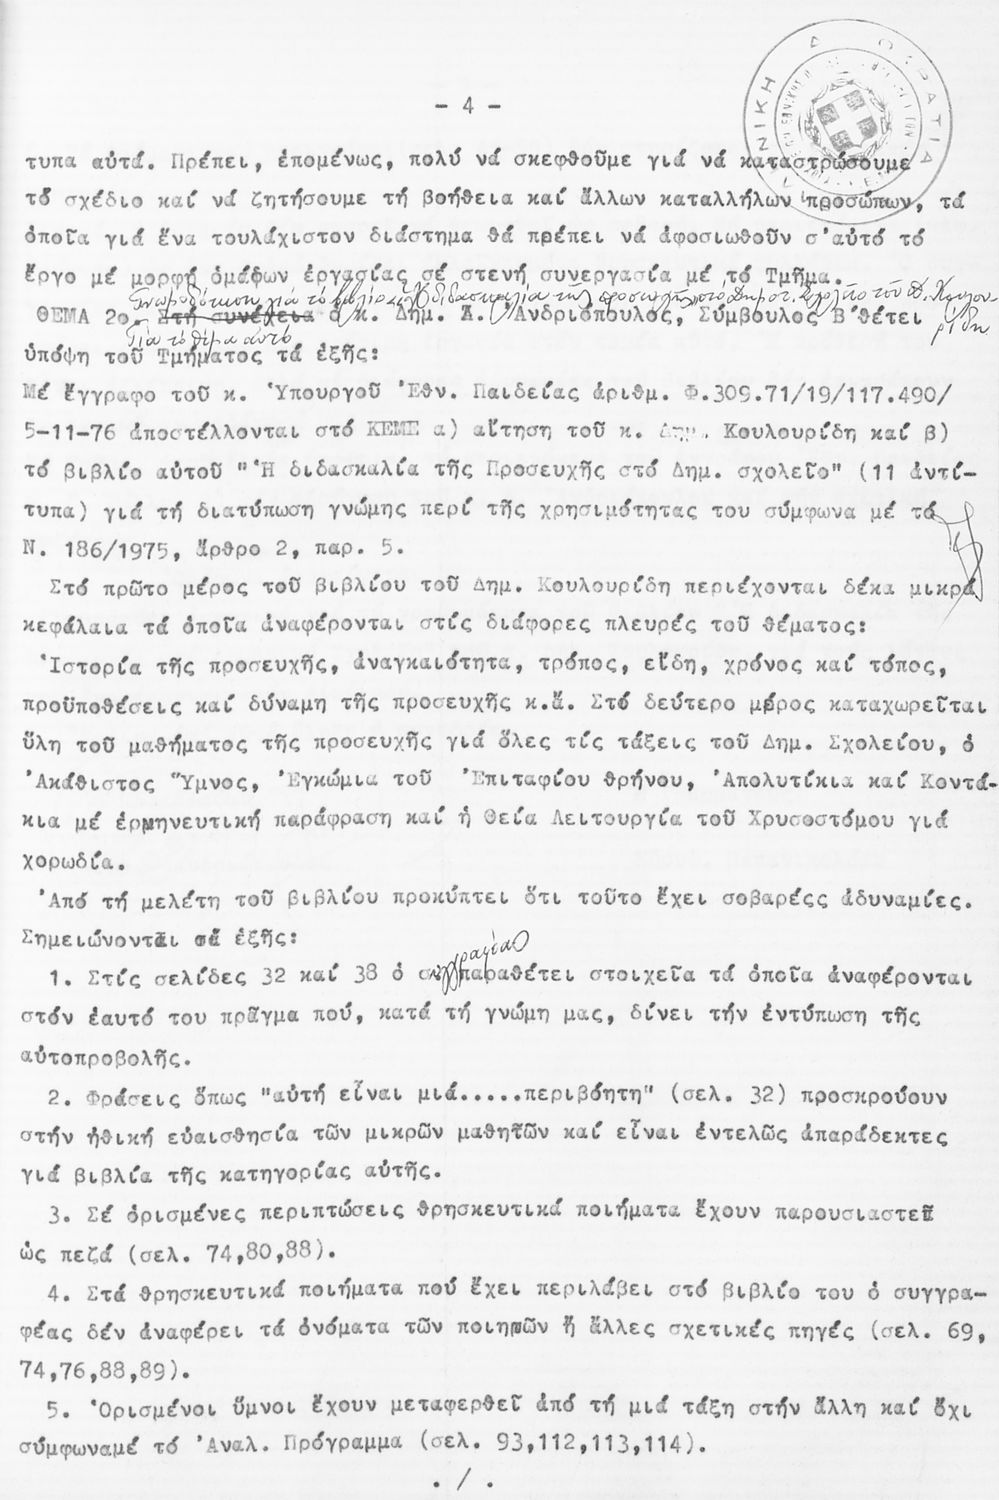 - 4 -
τυπα αὐτά. Πρέπει, ἑπομένως, πολύ νά σκεφθοῦμε γιά νά καταστρώσουμε
τό σχέδιο καί νά ζητήσουμε τή βοήθεια καί ἄλλων καταλλήλων προσώπων, τά
ὁποῖα γιά ἕνα τουλάχιστον διάστημα θά πρέπει νά ἀφοσιωθοῦν σ'αὐτό τό
ἔργο μέ μορφή ὁμάδων ἐργασίας σέ στενή συνεργασία μέ τό Τμῆμα.
Γνωμοδότηση γιά τό βιβλίο "Ἡ διδασκαλία τῆς προσευχῆς στό Δημοτ. Σχολεῖο τοῦ Δ. Κουλου
ΘΕΜΑ 2ο. Στή συνέχεια ὁ κ. Δημ. Χ. Ἀνδριόπουλος, Σύμβουλος Β΄θέτει ρίδη
Γιά τό θέμα αὐτό
ὑπόψη τοῦ Τμήματος τά ἑξῆς:
Μέ ἔγγραφο τοῦ κ. Ὑπουργοῦ Ἐθν. Παιδείας ἀριθμ. Φ.309.71/19/117.490/
5-11-76 ἀποστέλλονται στό ΚΕΜΕ α) αἴτηση τοῦ κ. Δημ. Κουλουρίδη καί β)
τό βιβλίο αὐτοῦ "Ἡ διδασκαλία τῆς Προσευχῆς στό Δημ. σχολεῖο" (11 ἀντί-
τυπα) γιά τή διατύπωση γνώμης περί τῆς χρησιμότητας του σύμφωνα μέ τό
Ν. 186/1975, ἄρθρο 2, παρ. 5.
Στό πρῶτο μέρος τοῦ βιβλίου τοῦ Δημ. Κουλουρίδη περιέχονται δέκα μικρά
κεφάλαια τά ὁποῖα ἀναφέρονται στίς διάφορες πλευρές τοῦ θέματος:
Ἱστορία τῆς προσευχῆς, ἀναγκαιότητα, τρόπος, εἴδη, χρόνος καί τόπος,
προϋποθέσεις καί δύναμη τῆς προσευχῆς κ.ἄ. Στό δεύτερο μέρος καταχωρεῖται
ὕλη τοῦ μαθήματος τῆς προσευχῆς γιά ὅλες τίς τάξεις τοῦ Δημ. Σχολείου, ὁ
Ἀκάθιστος Ὕμνος, Ἐγκώμια τοῦ Ἐπιταφίου θρήνου, Ἀπολυτίκια καί Κοντά-
κια μέ ἑρμηνευτική παράφραση καί ἡ Θεία Λειτουργία τοῦ Χρυσοστόμου γιά
χορωδία.
Ἀπό τή μελέτη τοῦ βιβλίου προκύπτει ὅτι τοῦτο ἔχει σοβαρέςς ἀδυναμίες.
Σημειώνονται τά ἑξῆς:
1. Στίς σελίδες 32 καί 38 ὁ συγγραφέας παραθέτει στοιχεῖα τά ὁποῖα ἀναφέρονται
στόν ἑαυτό του πρᾶγμα πού, κατά τή γνώμη μας, δίνει τήν ἐντύπωση τῆς
αὐτοπροβολῆς.
2. Φράσεις ὅπως "αὐτή εἶναι μιά.....περιβόητη" (σελ. 32) προσκρούουν
στήν ἠθική εὐαισθησία τῶν μικρῶν μαθητῶν καί εἶναι ἐντελῶς ἀπαράδεκτες
γιά βιβλία τῆς κατηγορίας αὐτῆς.
3. Σέ ὁρισμένες περιπτώσεις θρησκευτικά ποιήματα ἔχουν παρουσιαστεῖ
ὡς πεζά (σελ. 74,80,88).
4. Στά θρησκευτικά ποιήματα πού ἔχει περιλάβει στό βιβλίο του ὁ συγγρα-
φέας δέν ἀναφέρει τά ὀνόματα τῶν ποιητῶν ἤ ἄλλες σχετικές πηγές (σελ. 69,
74,76,88,89).
5. Ὁρισμένοι ὕμνοι ἔχουν μεταφερθεῖ ἀπό τή μιά τάξη στήν ἄλλη καί ὄχι
σύμφωναμέ τό Ἀναλ. Πρόγραμμα (σελ. 93,112,113,114).
./.